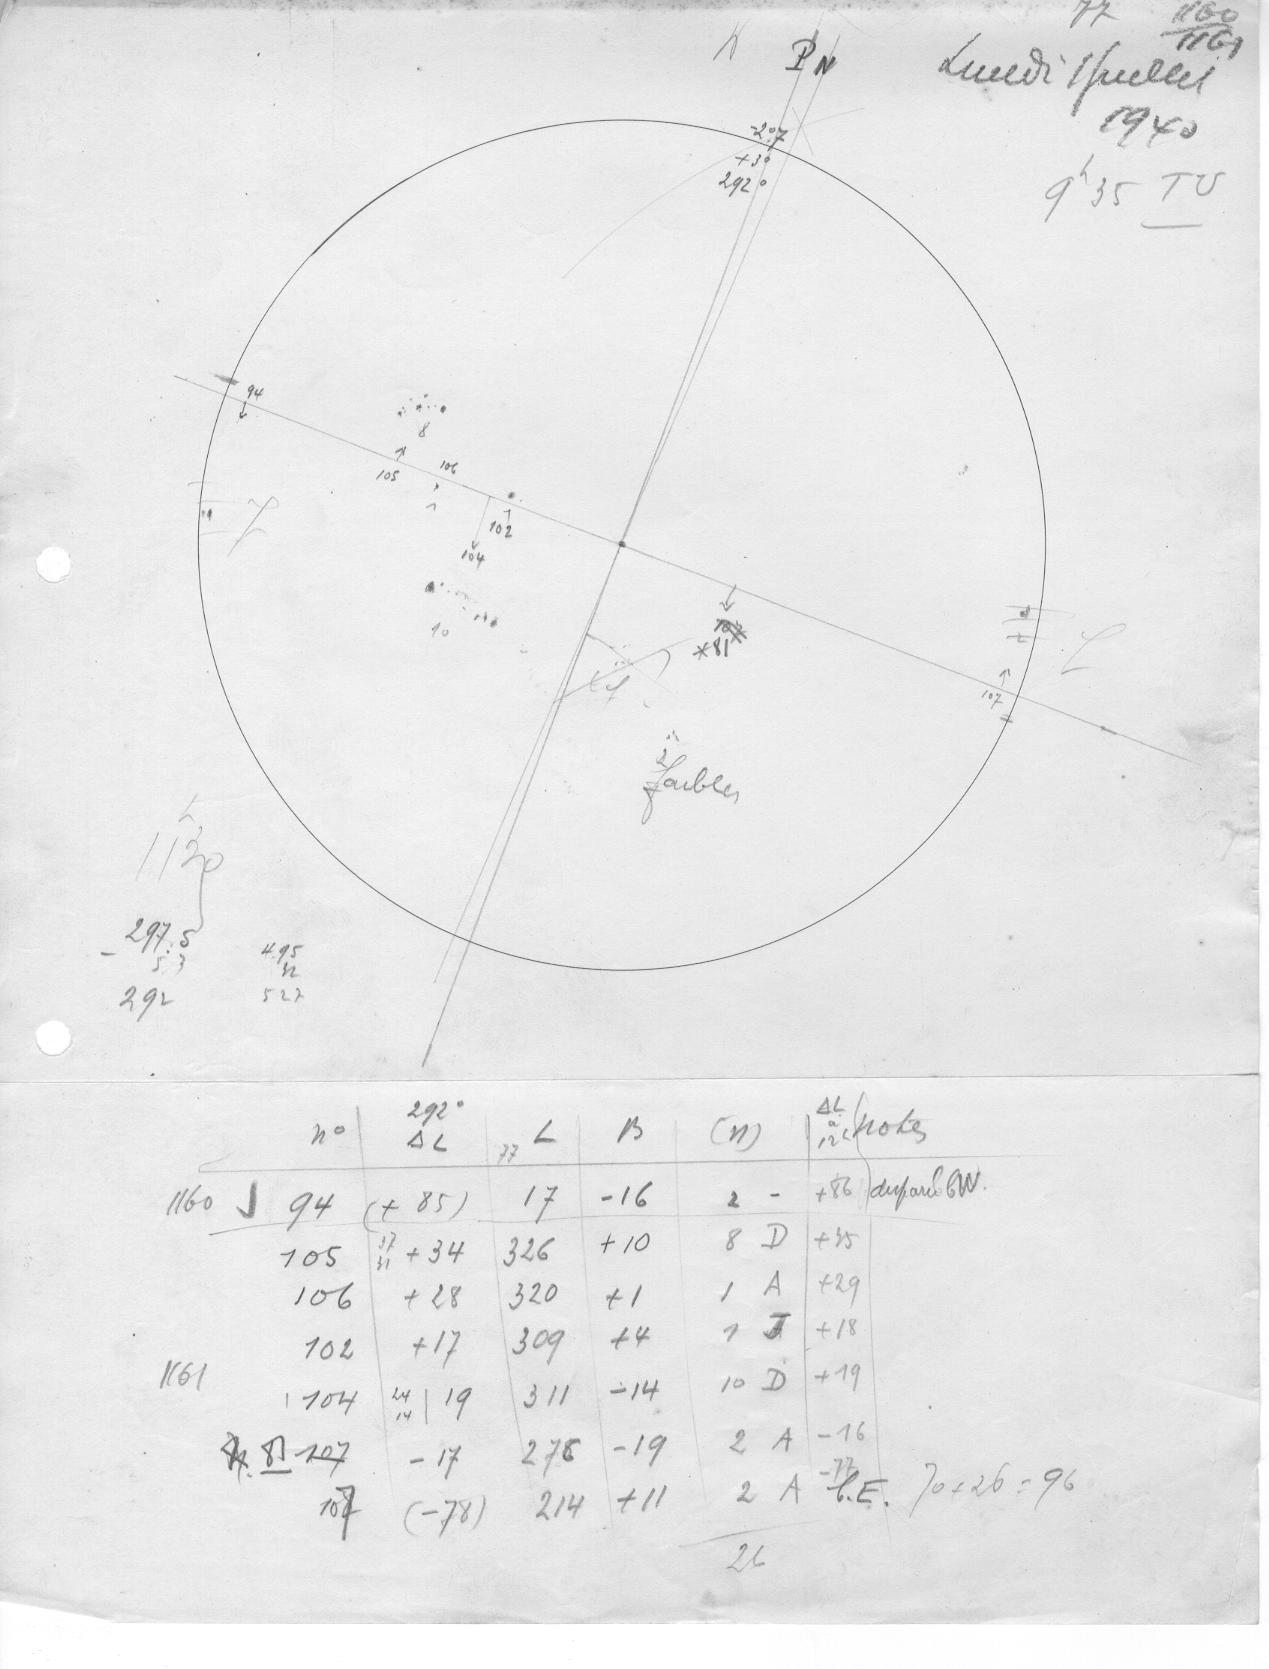 77 1160
1161
Lundi 1 Juillet
1940
9h35 TU
P N
-2°7
+3°
292°
94
8
105
106
1
102
104
10
81
107
2
faibles
1130
297.5
- 5.3
292
495
32
527
292°
n° ΔL 77 L B (n) ΔL à 12h notes
1160 J 94 (+85) 17 -16 2 - +86 disparu b W.
105 37 31 +34 326 +10 8 D +35
106 +28 320 +1 1 A +29
102 +17 309 +4 1 J +18
1161
104 24 14 19 311 -14 10 D +19
81 107 -17 275 -19 2 A -16
107 (-78) 214 +11 2 A -77 b.E. 70+26=96
26